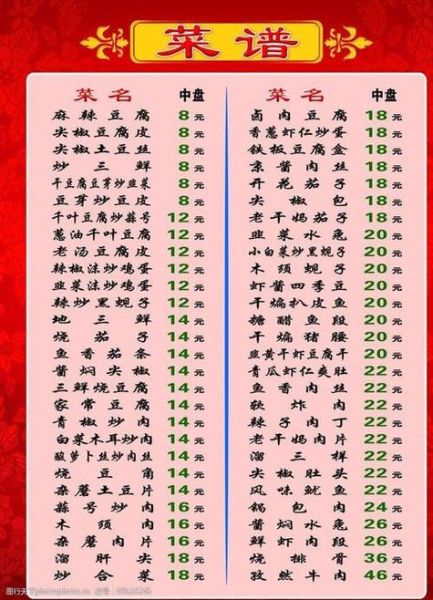 菜谱
菜名 中盘
麻辣豆腐 8元
尖椒豆腐皮 8元
尖椒土豆丝 8元
炒三鲜 8元
干豆腐豆芽炒韭菜 8元
豆芽炒豆皮 8元
千叶豆腐炒蒜苔 12元
葱油千叶豆腐 12元
老汤豆腐 12元
辣椒沫炒鸡蛋 12元
韭菜沫炒鸡蛋 12元
辣炒黑蚬子 12元
地三鲜 14元
烧茄子 14元
鱼香茄条 14元
酱焖尖椒 14元
三鲜烧豆腐 14元
家常豆腐 14元
青椒炒肉 14元
白菜木耳炒肉 14元
酸萝卜丝炒肉丝 14元
烧豆角 14元
杂蘑土豆片 14元
蒜苔炒肉 16元
木须肉 16元
杂蘑肉片 16元
溜肝尖 18元
炒合菜 18元
菜名 中盘
卤肉豆腐 18元
香葱虾仁炒蛋 18元
铁板豆腐盒 18元
京酱肉丝 18元
开花茄子 18元
尖椒包 18元
老干妈茄子 18元
韭菜水兔 20元
小白菜炒黑蚬子 20元
木须蚬子 20元
虾酱四季豆 20元
干煸扒皮鱼 20元
糖醋鱼段 20元
干煸猪腰 20元
韭黄干虾豆腐干 20元
青瓜虾仁爽肚 22元
鱼香肉丝 22元
软炸肉 22元
辣子肉丁 22元
老干妈肉片 22元
溜三样 22元
尖椒肚头 22元
风味鱿鱼 22元
锅包肉 24元
酱焖水兔 26元
鲜虾肉段 26元
烧排骨 36元
孜然牛肉 46元